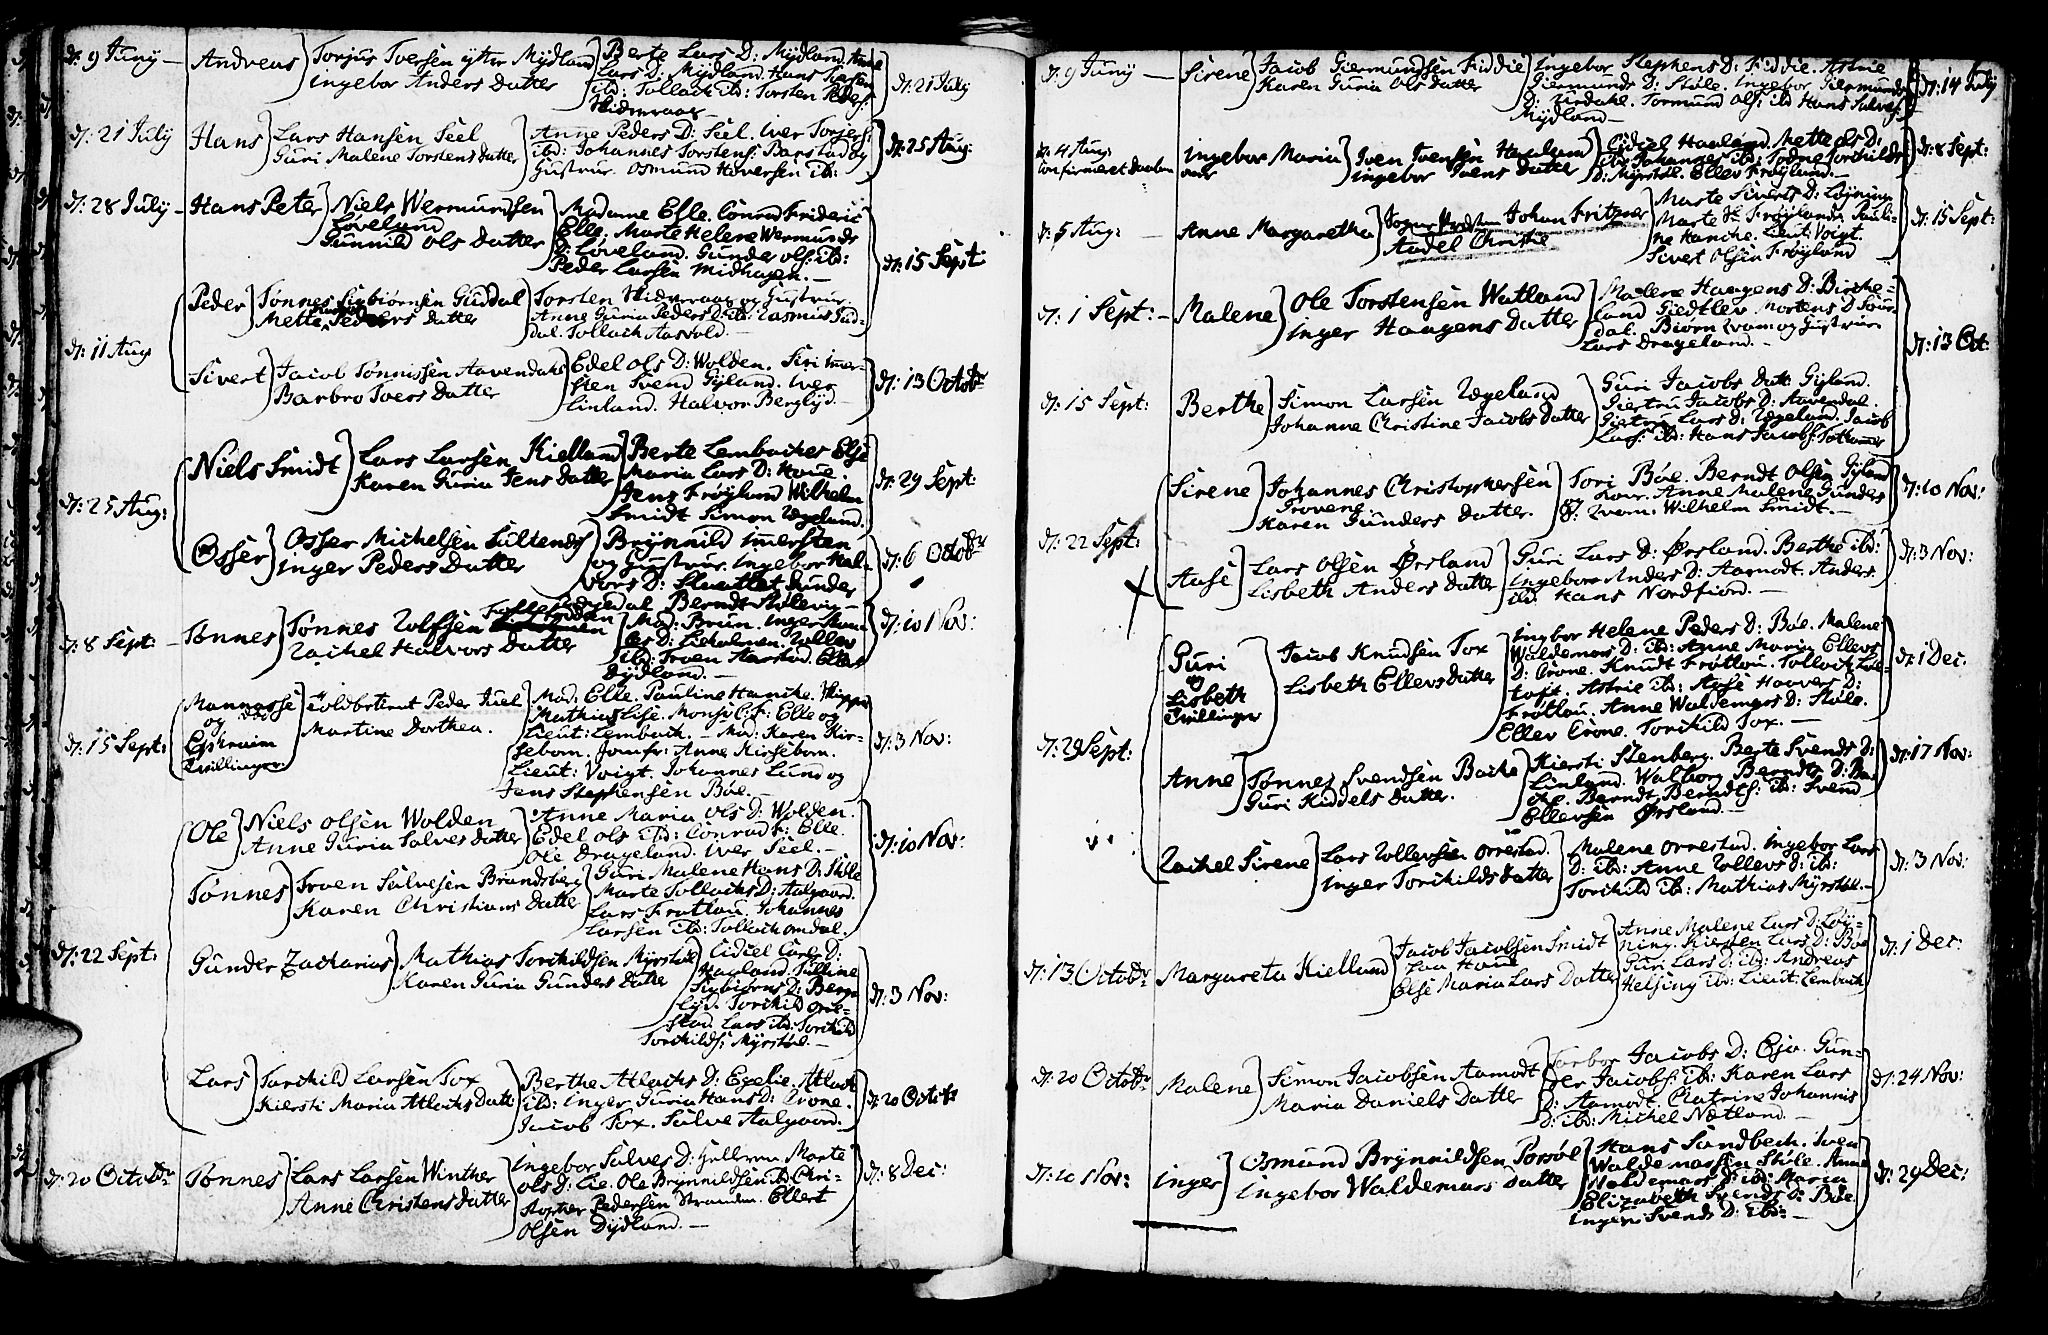 d: 9 Juny —
Andreas
Torjus Iversen yttre Mydland
ingebor Anders Datter
Berte Lars D: Mydland. Anne
Lars D: Mydland. Hans Larsen
ibd: Tollack ibd: Torsten Peders:
d: 21 July
d: 21 July
Hans
Lars Hansen Seel
Guri Malene Torstens Datter
Anne Peders D: Seel. iver Torgers:
ibd: Johannes Torstens: Barstad og
Hustrue. Osmund Haversen ib:
d: 25 Aug:
d: 28 July —
Hans Peter
Niels Wermundsen
Løveland
Gunnild Ols Datter
Madame Elle. Conrad Frideric
Elle. Marte Helene Wermunds
D: Løveland. Gunder Ols: ib:
Peder Larsen Midhagen. —
d: 15 Sept:
d: 11 Aug
Peder
Tønnes Sigbiørnsen Guddal
Mette Peders Datter
Torsten Hidneraag og Hustrue.
Anne Guria Peders D: ib: Rasmus Gud-
dal. Tollack Aasvold. —
Sivert
Jacob Tønnissen Aavendahl
Barbro Ivers Datter
Edel Ols D: Wolden. Siri Imer-
sten Svend Gyland. iver
Linland. Halvor Berglyd. —
d: 13 Octobr
d: 25 Aug:
Niels Smidt
Lars Larsen Kielland
Karen Guria Jens Datter
Berte Lembackes Else
Maria Lars D: Haue
Jens Frøyland Wilhelm
Smidt Simon Ægeland.
d: 29 Sept:
Osser
Osser Michelsen Sultends
inger Peders Datter
Brynnild Imersten
og Hustrue. Ingebor Hal-
vors D: Gunder
Berndt
d: 6 Octobr
d: 8 Sept: —
Tønnes
Tønnes Rolfsen
Rachel Halvors Datter
Mad: Bruun. Inger
ibd: Troen Aarstad. Elias
Dydland. —
d: 10 Nov:
d: 15 Sept:
Mannasse
og
Ephraim
Tvillinger
Toldbetient Peder Juel
Martine Dorthea.
Mad. Elle. Pauline Hancke. Skipper
Mathias Lise. Monsr C: F: Elle og
Lieut: Lembach. — Mad: Karen Kir-
sebom. Jomfr: Anne Kirsebom.
Lieut: Voigt. Johannes Lund og
Jens Stephensen Bøe. —
d: 3 Nov:
d: 22 Sept:
Ole
Niels Olsen Wolden
Anne Guria Salves Datter
Anne Maria Ols D: Wolden.
Edel Ols ibd: Conrad F: Elle.
Ole Drageland. iver Seel. —
d: 10 Nov:
Tønnes
Troen Salvesen Brandsberg
Karen Christians Datter
Guri Malene Hans D: Støle
Marte Tollacks D: Aalgaard.
Lars Frøtlau. Johannes
Larsen ib: Tollack Omdal.
Gunder Zacharias
Mathias Torchildsen Myrstøl
Karen Guria Gunders Datter
Cidsel Carls D:
Haaland.
Sigbiørns D: Berg-
lyd. Torchild Orre-
stad. Lars ib: Torchild
Torchilds: Myrstøl. —
d: 3 Nov:
Lars
Torchild Larsen Tox
Kiersti Maria Atlacks Datt:
Berthe Atlacks D: Egelie. Atlack
ibd: inger Guria Hans D: Crone.
Jacob Tox. Salve Aalgaard. —
d: 20 Octobr
d: 20 Octobr
Tønnes
Lars Larsen Winther
Anne Christens Datter
Ingebor Salves D: Helleren. Marte
Ols D: Lie. Ole Brynnildsen ib: Chri-
stopher Pedersen Stranden. Ellert
Olsen Dydland. —
d: 8 Dec:
d: 9 Juny —
Sirene
Jacob Giermundsen Fiddie
Karen Guria Ols Datter
Ingebor Stephens D: Fiddie. Astrie
Giermunds D: Støle. Ingebor Giermunds
D: Urdahl. Tormund Ols: ibd Hans Salves:
Mydland —
d: 14 July
d: 4 Aug:
confirmeret Daaben
Ingebor Maria
Iven Ivensen Haaland
ingebor Ivens Datter
Cidsel Haaland. Mette Ols D:
ib: Johannes ib: Torchilds
D: Myrstøl. Ellev Frøyland. —
d: 8 Sept:
d: 5 Aug: —
Anne Margaretha
Johan Fritzner
Aadel Christie
Marte Siverts D: Løyning
Marte H: Frøylands Pauli-
ne Hancke. Lieut: Voigt.
Sivert Olsen Frøyland
d: 15 Sept:
d: 1 Sept: —
Malene
Ole Torstensen Watland
inger Haagens Datter
Malene Haagens D: Birche-
land Giedtlev Mortens D Guri-
dal. Biørn Qvam og Hustrue
Lars Drageland. —
d: 13 Oct:
d: 15 Sept:
Berthe
Simon Larsen Ægeland
Johanne Christine Jacobs Datter
Guri Jacobs Datt: Gyland.
Giertru Jacobs D: Aavendal.
Giertru Lars D: Ægeland. Jacob
Lars: ib: Hans Jacobs:
d: 22 Sept:
Sirene
Johannes Christophersen
Provene
Karen Gunders Datter.
Tori Bøe. Berndt Olsen Gyland
og Anne Malene Gunders
D: Qvam. Wilhelm Smidt. —
d: 10 Nov:
Aase
Lars Olsen Ørsland
Lisbeth Anders Datter
Guri Lars D: Ørsland. Berthe ib:
Ingebor Anders D: Aamodt. Anders
ibd. Hans Nordfiord. —
d: 3 Nov:
d: 29 Sept:
Guri
og
Lisbeth
Tvillinger
Jacob Knudsen Tox
Lisbeth Ellevs Datter
Ingbor Helene Peders D: Bøe. Malene
Waldemars D: ib: Anne Maria Ellevs
D: Crone. Knudt Frøtlau. Tollack Løv-
toft. Astrie ib: Aase Haavers D:
Frøtlau. Anne Waldemars D: Støle.
Ellev Crone. Torchild Tox. —
d: 1 Dec:
Anne
Tønnes Svendsen Backe
Guri Kiddels Datter.
Kiersti Stenberg. Berte Svends D:
Linland. Walborg Berndts D: Bac-
ke. Berndt Berndts: ib: Svend
Ellevsen Ørsland. —
d: 17 Nov:
Rachel Sirene
Lars Rollevsen Orrestad.
inger Torchilds Datter
Malene Orrestad. Ingebor Lars
D: ib: Anne Rollevs D: ib:
Torchild ib: Mathias Myrstøl. —
d: 3 Nov:
d: 13 Octobr
Margareta Kielland
Jacob Jacobsen Smidt
paa Haue
Else Maria Lars Datter
Anne Malene Lars D: Løy-
ning. Kiersten Lars D: Bøe
Guri Lars D: ib: Andreas
Helsing ib: Lieut: Lembach
d: 1 Dec:
d: 20 Octobr
Malene
Simon Jacobsen Aamodt
Maria Daniels Datter
Torbor Jacobs D: Eje. Gun-
der Jacobs: ib: Karen Lars
D: Aamodt. Chatrine Johannis
D: ib: Michel Nætland. —
d: 24 Nov:
d: 10 Nov:
inger
Osmund Brynnildsen Porsøl
Ingebor Waldemars Datter
Hans Sandbech. Sven
Waldemarsen Støle. Anne
Waldemars D: ib: Maria
Elizabeth Svends D: Bøe.
inger Svends D: ib: —
d: 29 Dec: